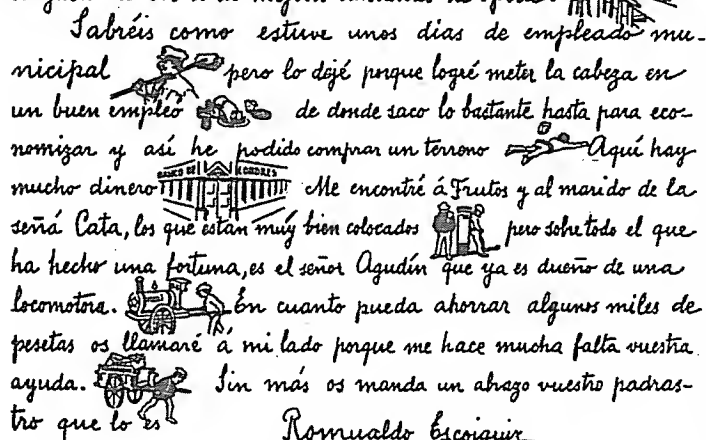 Sabréis como estuve unos dias de empleado mu-
nicipal pero lo dejé porque logré meter la cabeza en
un buen empleo de donde saco lo bastante hasta para eco-
nomizar y así he podido comprar un terreno Aquí hay
mucho dinero BANCO DE LONDRES Me encontré á Frutos y al marido de la
señá Cata, los que están muy bien colocados pero sobre todo el que
ha hecho una fortuna, es el señor Agudín que ya es dueño de una
locomotora. En cuanto pueda ahorrar algunos miles de
pesetas os llamaré á mi lado porque me hace mucha falta vuestra
ayuda. Sin más os manda un abrazo vuestro padras-
tro que lo es
Romualdo